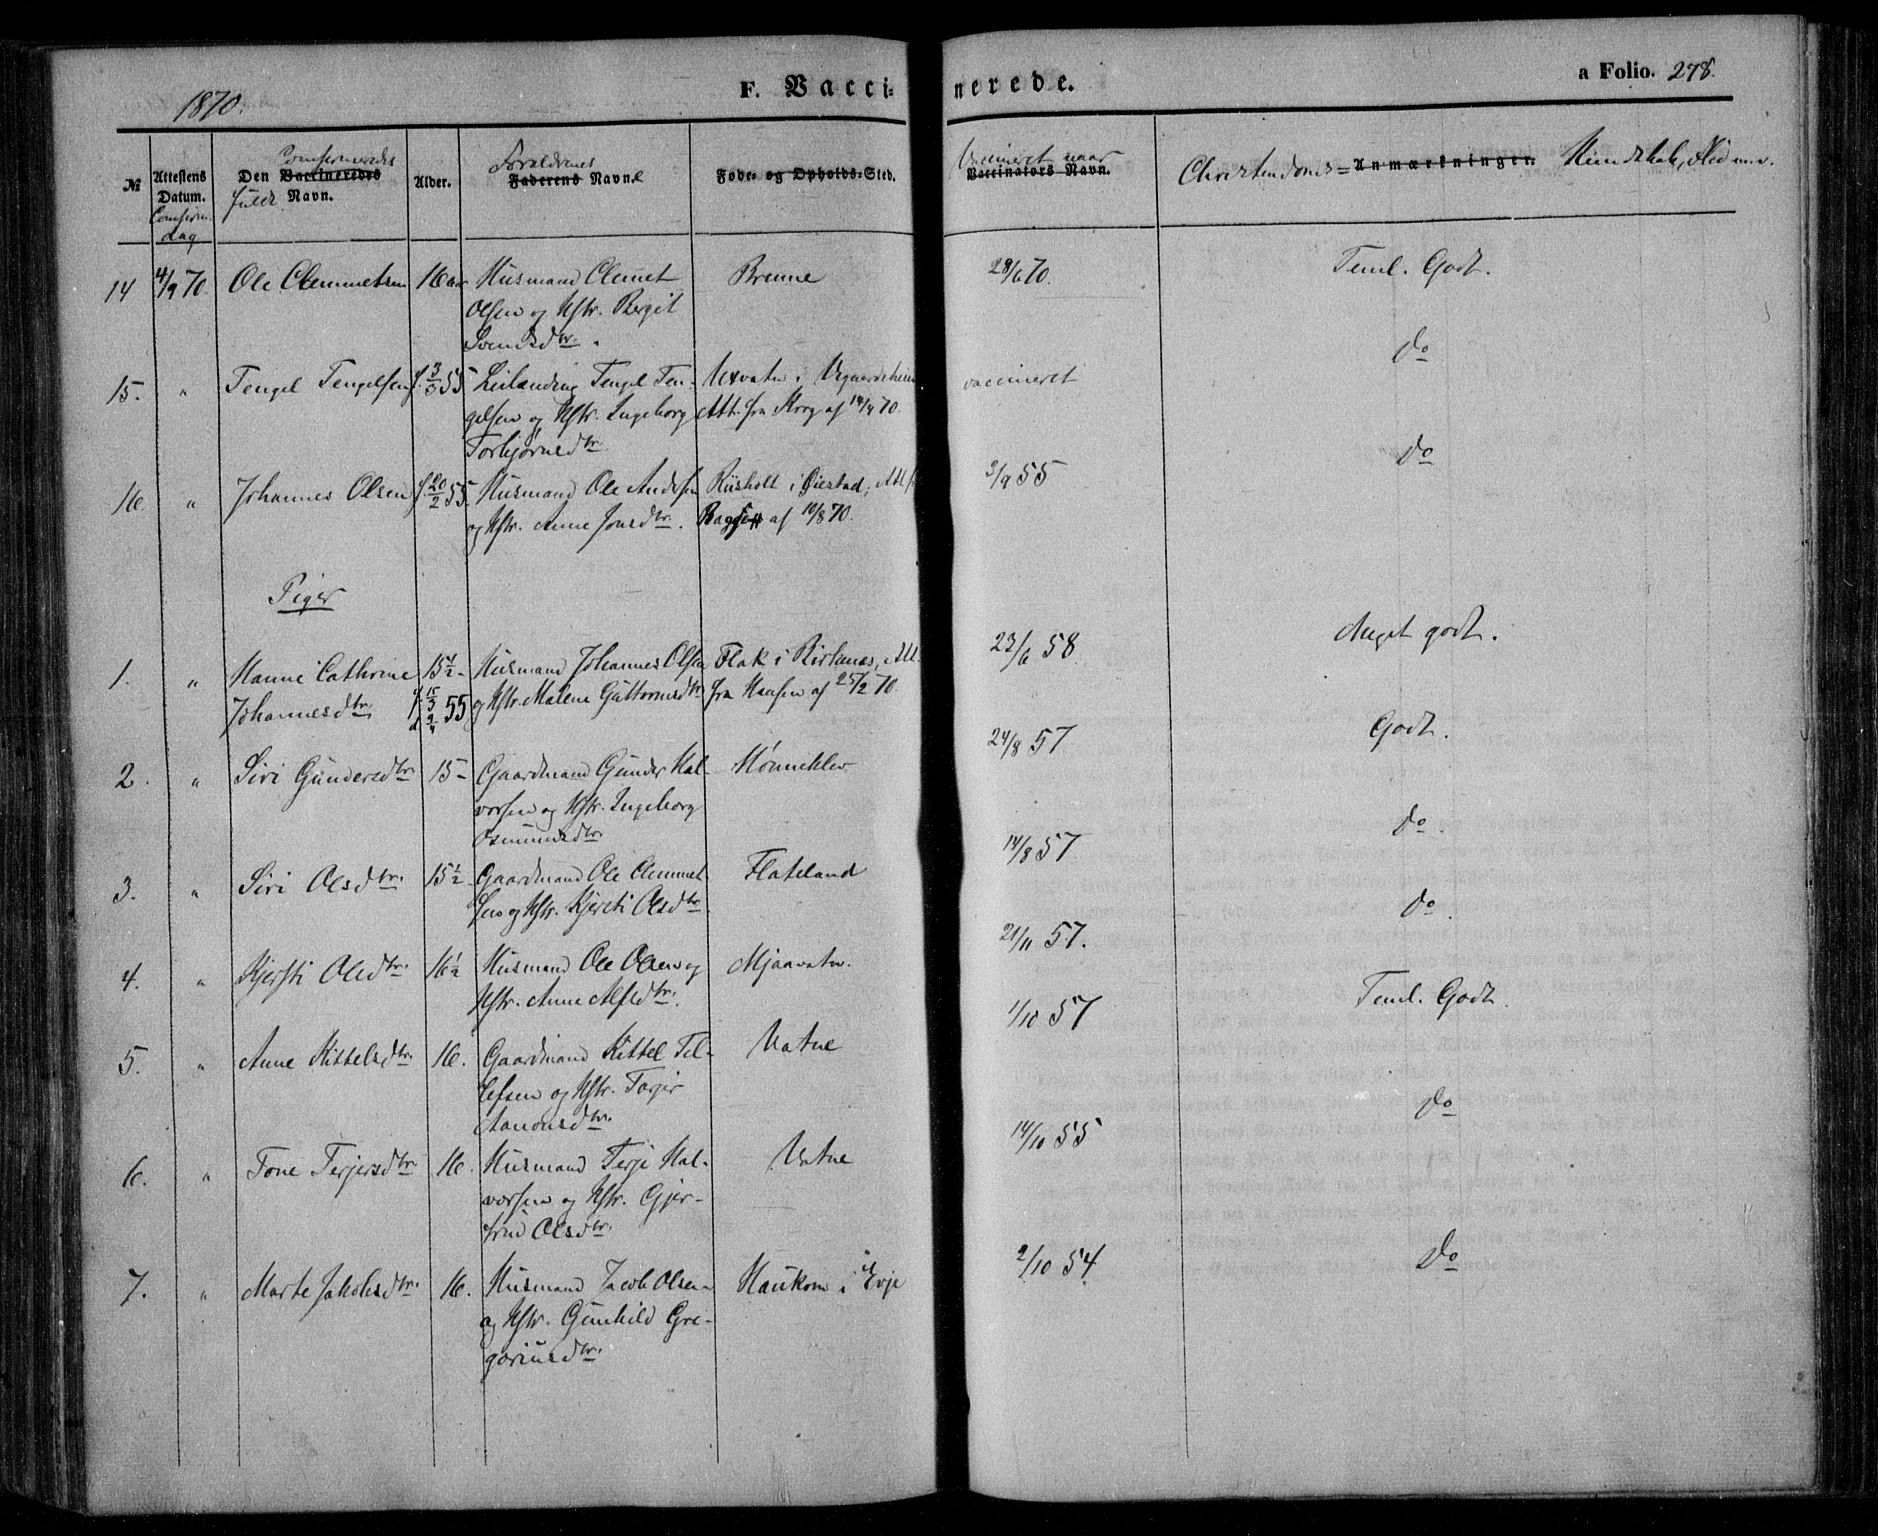 1870.
F. Vaccinerede.
a Folio. 278.
№
Attestens Datum. Confirm. dag
Den Vaccineredes Confirmeredes fulde Navn.
Alder.
Faderens Forældrenes Navne
Føde- og Opholds-Sted.
Vaccinators Navn. Vaccineret naar
Christendoms= Anmærkninger. Kundskab, Flid m.v.
14 4/9 70. Ole Clemmetsen 16 aar Husmand Clemet Brenne 28/6 70. Teml. Godt.
Olsen og Hstr. Bergit
Svendsdtr.
15. " Tengel Tengelsen f. 3/3 55 Leilænding Tengel Ten- Uxvatn i Vegaardsheien vaccineret do
gelsen og Hstr. Ingeborg Att. fra Krog af 14/4 70.
Torbjørnsdtr.
16. " Johannes Olsen f. 20/2 55. Husmand Ole Andersen Riisholt i Øiestad, Att. fr 3/9 55 do
og Hstr. Anne Jonsdtr. af 10/8 70.
Piger
1. " Hanne Cathrine 15½ Husmand Johannes Olsen Flak i Birkenæs, Att. 23/6 58. Meget godt.
Johannesdtr. f. 15/3 d 9/4 55 og Hstr. Malene Guttormsdtr. fra Hansen af 25/2 70.
2. " Siri Gundersdtr. 15 Gaardmand Gunder Hal- Mønneklev 24/8 57 Godt.
vorsen og Hstr. Ingeborg
Osmundsdtr.
3. " Siri Olsdtr. 15½ Gaardmand Ole Clemmet Flateland 14/8 57. do.
sen og Hstr. Kjersti Olsdtr.
4. " Kjersti Olsdtr. 16½ Husmand Ole Olsen og Mjaavatn. 21/11 57. do
Hstr. Anne Alfsdtr.
5. " Anne Kittelsdtr. 16. Gaardmand Kittel Tel- Vatne 1/10 57 Teml. Godt.
lefsen og Hstr. Torjer
Aanonsdtr.
6. " Tone Terjersdtr. 16. Husmand Terje Hal- Vatne 14/10 55 do
vorsen og Hstr. Gjer-
trud Olsdtr.
7. " Marte Jakobsdtr. 16. Husmand Jacob Olsen Haukom i Evje 2/10 54 Do
og Hstr. Gunhild Gre-
goriusdtr.